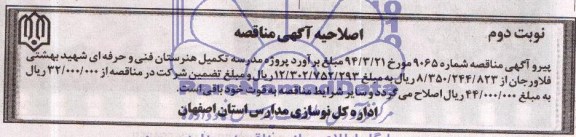 نوبت دوم
اصلاحیه آگهی مناقصه
پیرو آگهی مناقصه شماره ۹۰۶۵ مورخ ۹۴/۳/۲۱ مبلغ برآورد پروژه مدرسه تکمیل هنرستان فنی و حرفه ای شهید بهشتی
فلاورجان از ۸/۳۵۰/۲۴۴/۸۲۳ ریال به مبلغ ۱۲/۳۰۲/۷۵۲/۲۹۳ ریال و مبلغ تضمین شرکت در مناقصه از ۳۲/۰۰۰/۰۰۰ ریال
به مبلغ ۴۴/۰۰۰/۰۰۰ ریال اصلاح می گردد و سایر شرایط مناقصه به قوت خود باقی است
اداره کل نوسازی مدارس استان اصفهان